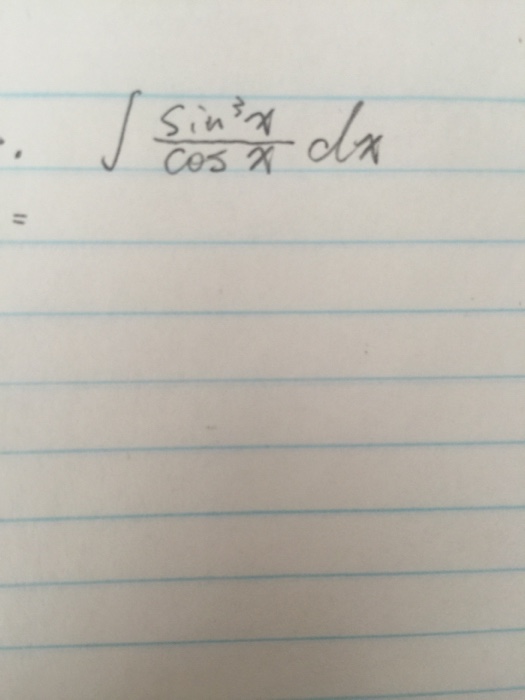 . ∫ sin³x / cos x dx
=